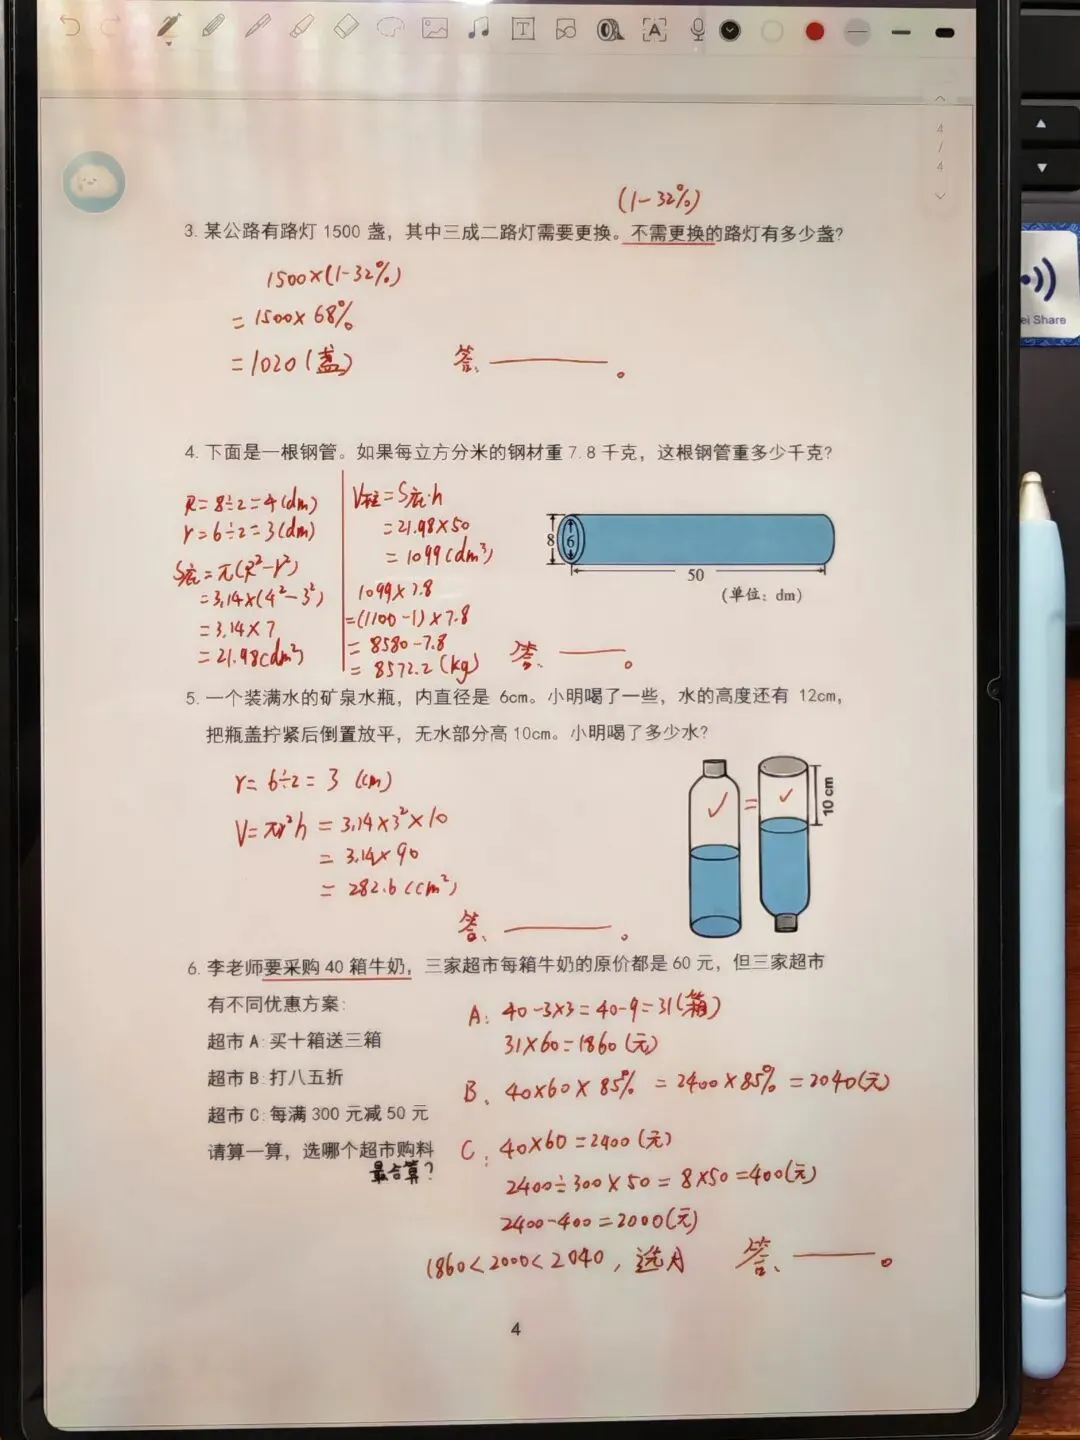 4
/
4
ei Share
(1-32%)
3. 某公路有路灯 1500 盏，其中三成二路灯需要更换。不需更换的路灯有多少盏?
1500×(1-32%)
= 1500×68%
=1020(盏) 答、 。
4. 下面是一根钢管。如果每立方分米的钢材重 7.8 千克，这根钢管重多少千克?
R=8÷2=4(dm)
r=6÷2=3(dm)
S底=π(R²-r²)
=3.14×(4²-3²)
=3.14×7
=21.98(dm²)
V柱=S底·h
=21.98×50
=1099(dm³)
1099×7.8
=(1100-1)×7.8
= 8580-7.8
= 8572.2(kg) 答、 。
8
6
50
(单位：dm)
5. 一个装满水的矿泉水瓶，内直径是 6cm。小明喝了一些，水的高度还有 12cm，
把瓶盖拧紧后倒置放平，无水部分高 10cm。小明喝了多少水?
r= 6÷2= 3 (cm)
V=πr²h = 3.14×3²×10
= 3.14×90
= 282.6(cm²)
答、 。
=
10 cm
6. 李老师要采购 40 箱牛奶，三家超市每箱牛奶的原价都是 60 元，但三家超市
有不同优惠方案:
超市 A:买十箱送三箱
超市 B:打八五折
超市 C:每满 300 元减 50 元
请算一算，选哪个超市购料
最合算?
A: 40-3×3=40-9=31(箱)
31×60=1860(元)
B、40×60×85% =2400×85% =2040(元)
C: 40×60=2400(元)
2400÷300×50= 8×50=400(元)
2400-400=2000(元)
1860<2000<2040，选A 答、 。
4